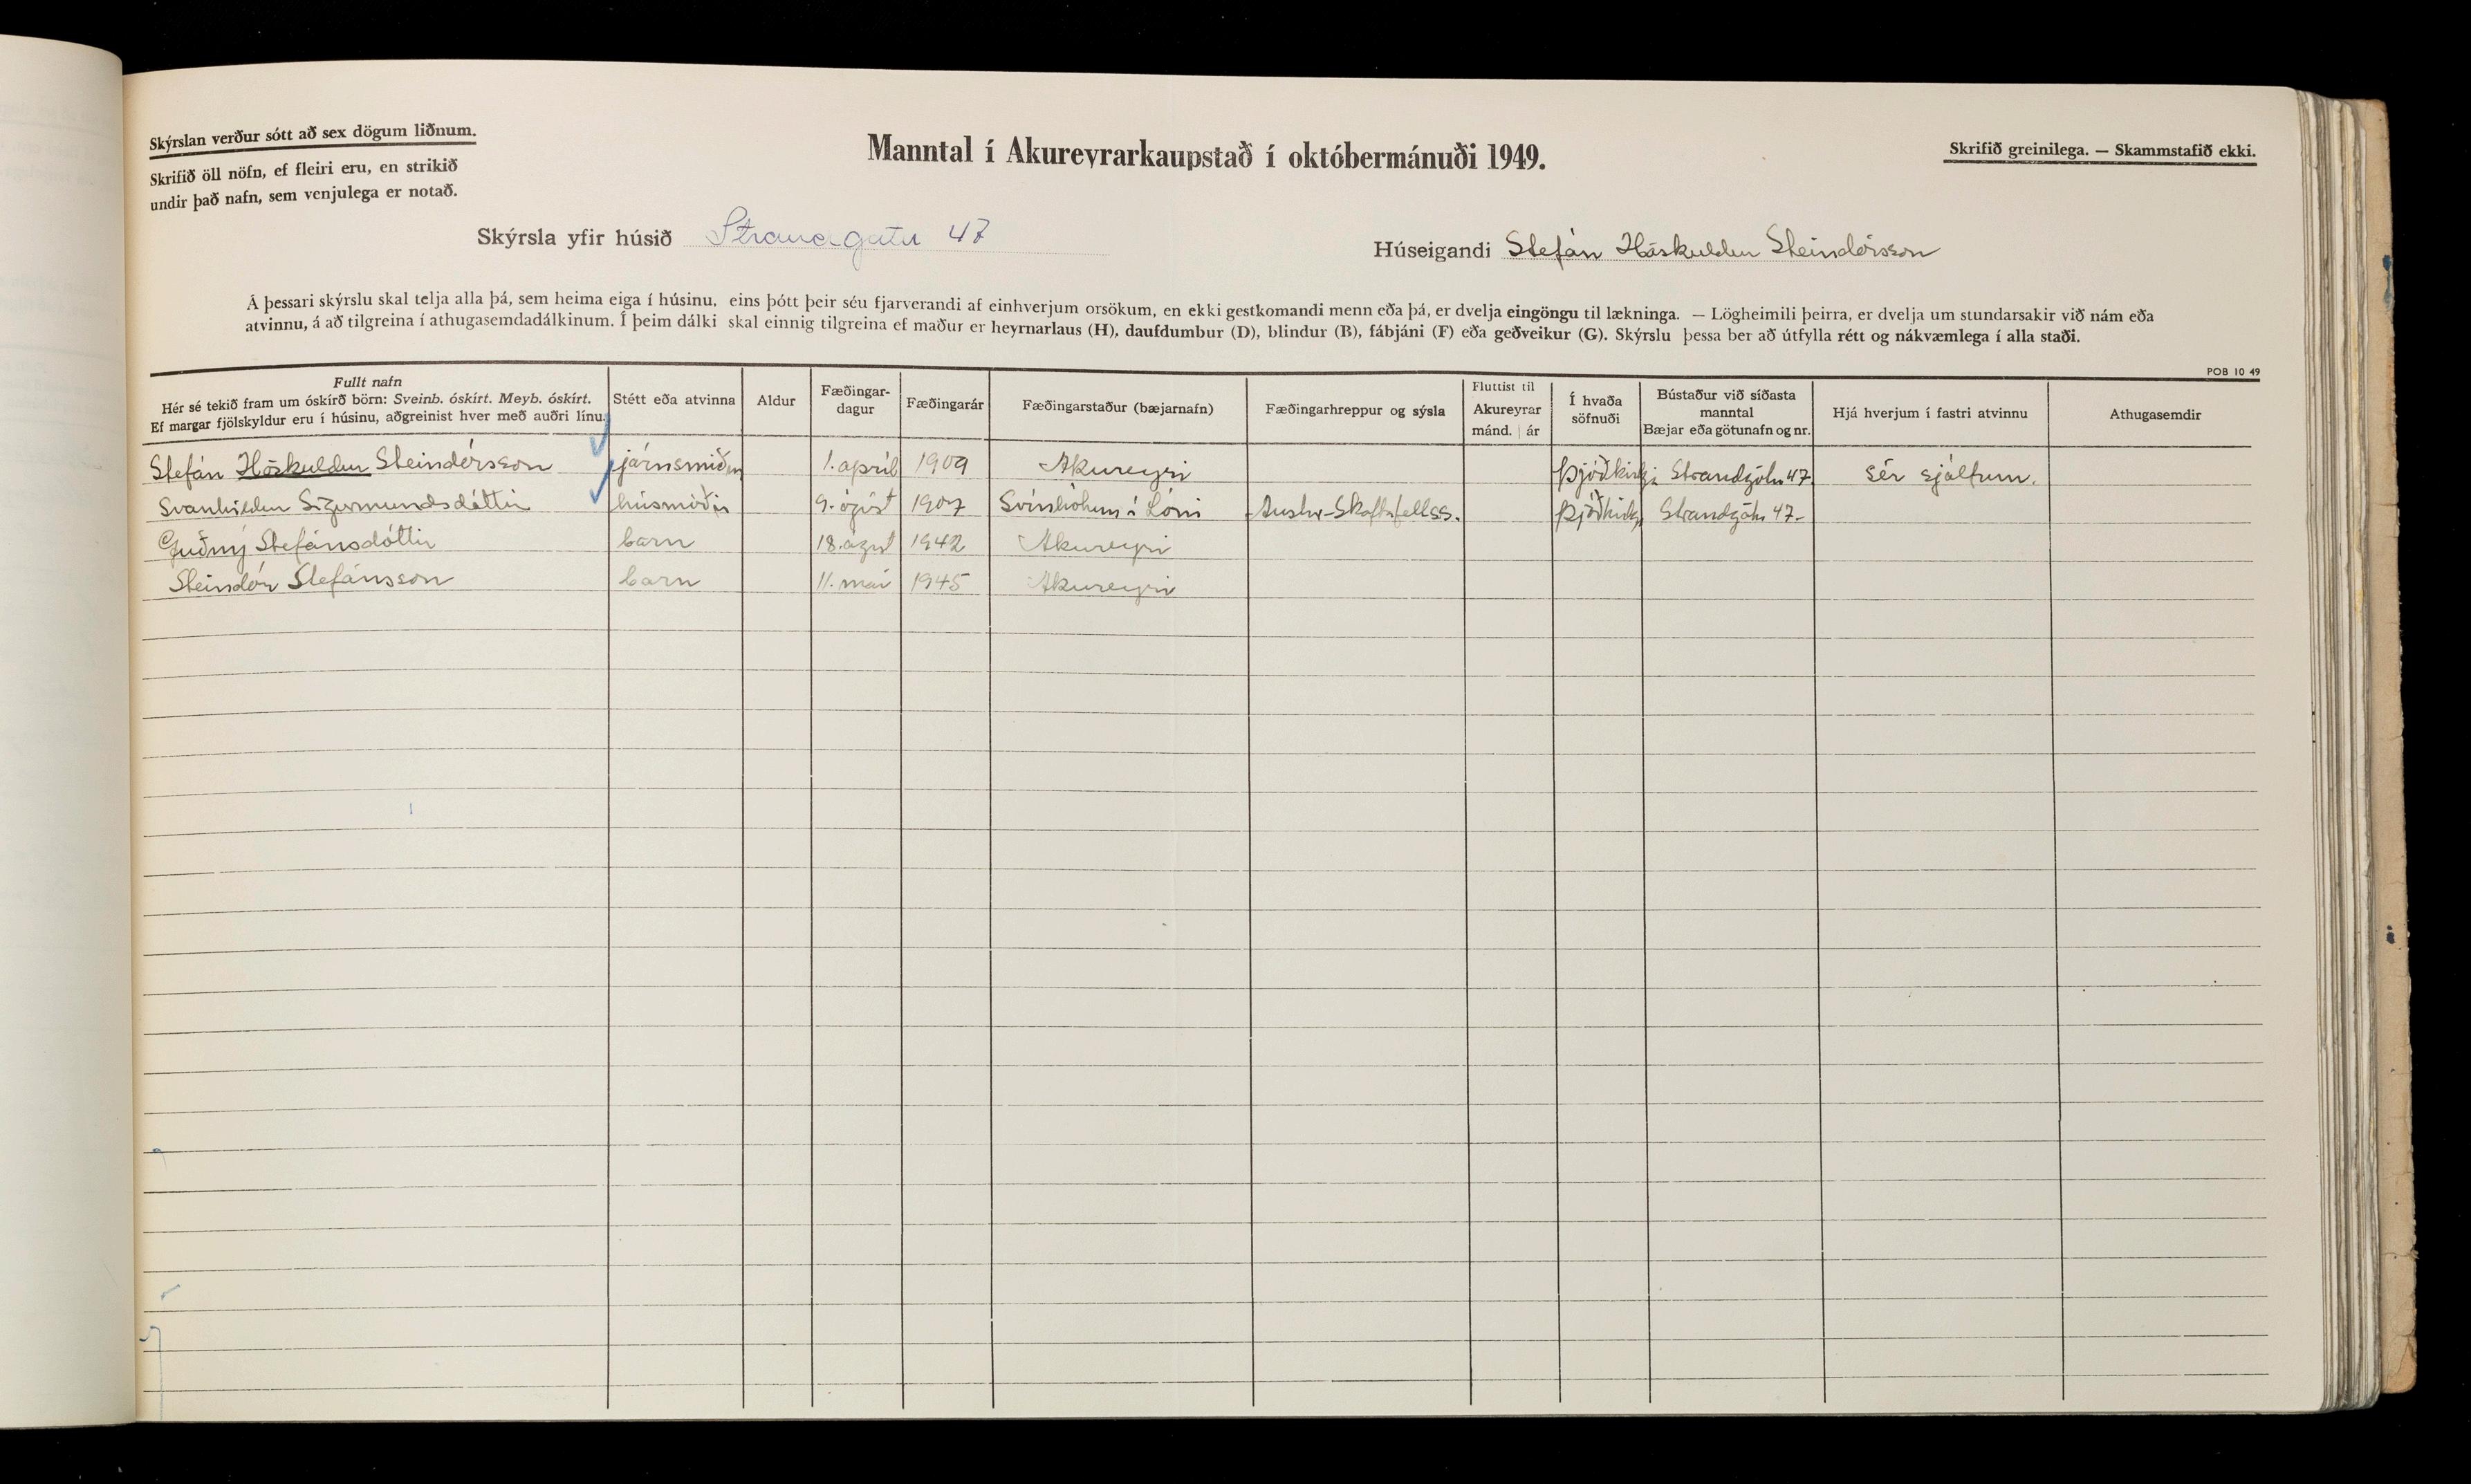 Skýrslan verður sótt að sex dögum liðnum.
Skrifið öll nöfn, ef fleiri eru, en strikið
undir það nafn, sem venjulega er notað.
Manntal í Akureyrarkaupstað í októbermánuði 1949.
Skrifið greinilega. — Skammstafið ekki.
Skýrsla yfir húsið Strandgata 47
Húseigandi Stefán Höskuldur Steindórsson
Á þessari skýrslu skal telja alla þá, sem heima eiga í húsinu, eins þótt þeir séu fjarverandi af einhverjum orsökum, en ekki gestkomandi menn eða þá, er dvelja eingöngu til lækninga. — Lögheimili þeirra, er dvelja um stundarsakir við nám eða
atvinnu, á að tilgreina í athugasemdadálkinum. Í þeim dálki skal einnig tilgreina ef maður er heyrnarlaus (H), daufdumbur (D), blindur (B), fábjáni (F) eða geðveikur (G). Skýrslu þessa ber að útfylla rétt og nákvæmlega í alla staði.
POB 10 49
Fullt nafn
Hér sé tekið fram um óskírð börn: Sveinb. óskírt. Meyb. óskírt.
Ef margar fjölskyldur eru í húsinu, aðgreinist hver með auðri línu.
Stétt eða atvinna
Aldur
Fæðingar-
dagur
Fæðingarár
Fæðingarstaður (bæjarnafn)
Fæðingarhreppur og sýsla
Fluttist til
Akureyrar
mánd. | ár
Í hvaða
söfnuði
Bústaður við síðasta
manntal
Bæjar eða götunafn og nr.
Hjá hverjum í fastri atvinnu
Athugasemdir
Stefán Höskuldur Steindórsson járnsmiður 1. apríl 1909 Akureyri Þjóðkirkj Strandgötu 47. sér sjálfum.
Svanhildur Sigurmundsdóttir húsmóðir 9. ágúst 1907 Svínhólum í Lóni Austur-Skaftafellss. Þjóðkirkj Strandgötu 47-
Guðný Stefánsdóttir barn 18. ágúst 1942 Akureyri
Steindór Stefánsson barn 11. maí 1945 Akureyri